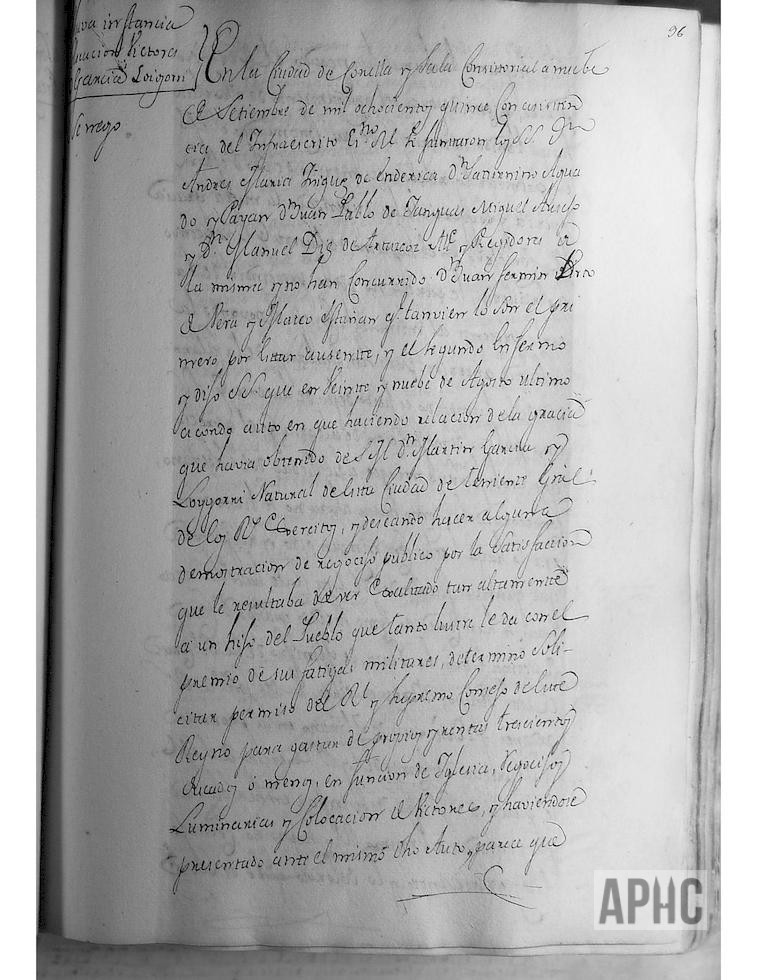 96
instancia
Victores
Garcia Loigorri
En la Ciudad de Corella y Sala Consistorial a nuebe
de Setiembre de mil ochocientos quince Con asisten
cia del Infraescrito Esno Rl se juntaron los SS. Dn
Andres Maria Iñiguez de Enderica Dn Saturnino Agua
do y Payan Dn Juan Pablo de Tanguas Miguel
y Dn Manuel Diz de Alc y Regidores de
la misma y no han Concurrido Dn Juan Fermin Virto
de Vera y Mateo qe tanvien lo son el pri
mero por estar ausente, y el segundo enfermo
y dijo SS. que en Veinte y nuebe de Agosto ultimo
acordo auto en que haciendo relacion de la gracia
que havia obtenido de S M Dn Martin Garcia y
Loygorri Natural de esta Ciudad de teniente Gral
de los Rs Exercitos, y deseando hacer alguna
demostracion de regocijo publico por la Satisfaccion
que le resultaba de ver Exaltado tan altamente
a un hijo del Pueblo que tanto lustre le da con el
premio de sus fatigas militares, determino Soli-
citar permiso del Rl y Supremo Consejo de este
Reyno para gastar de propios y rentas trescientos
ducados ó menos, en funcion de Iglesia, Regocijos
Luminarias y Colocacion de Victores, y haviendose
presentado ante el mismo dho Auto, parece que
APHC